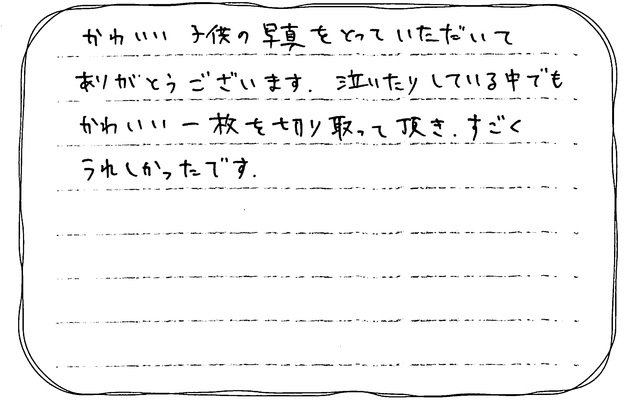 かわいい 子供の写真をとっていただいて
ありがとうございます. 泣いたりしている中でも
かわいい一枚を切り取って頂き.すごく
うれしかったです.